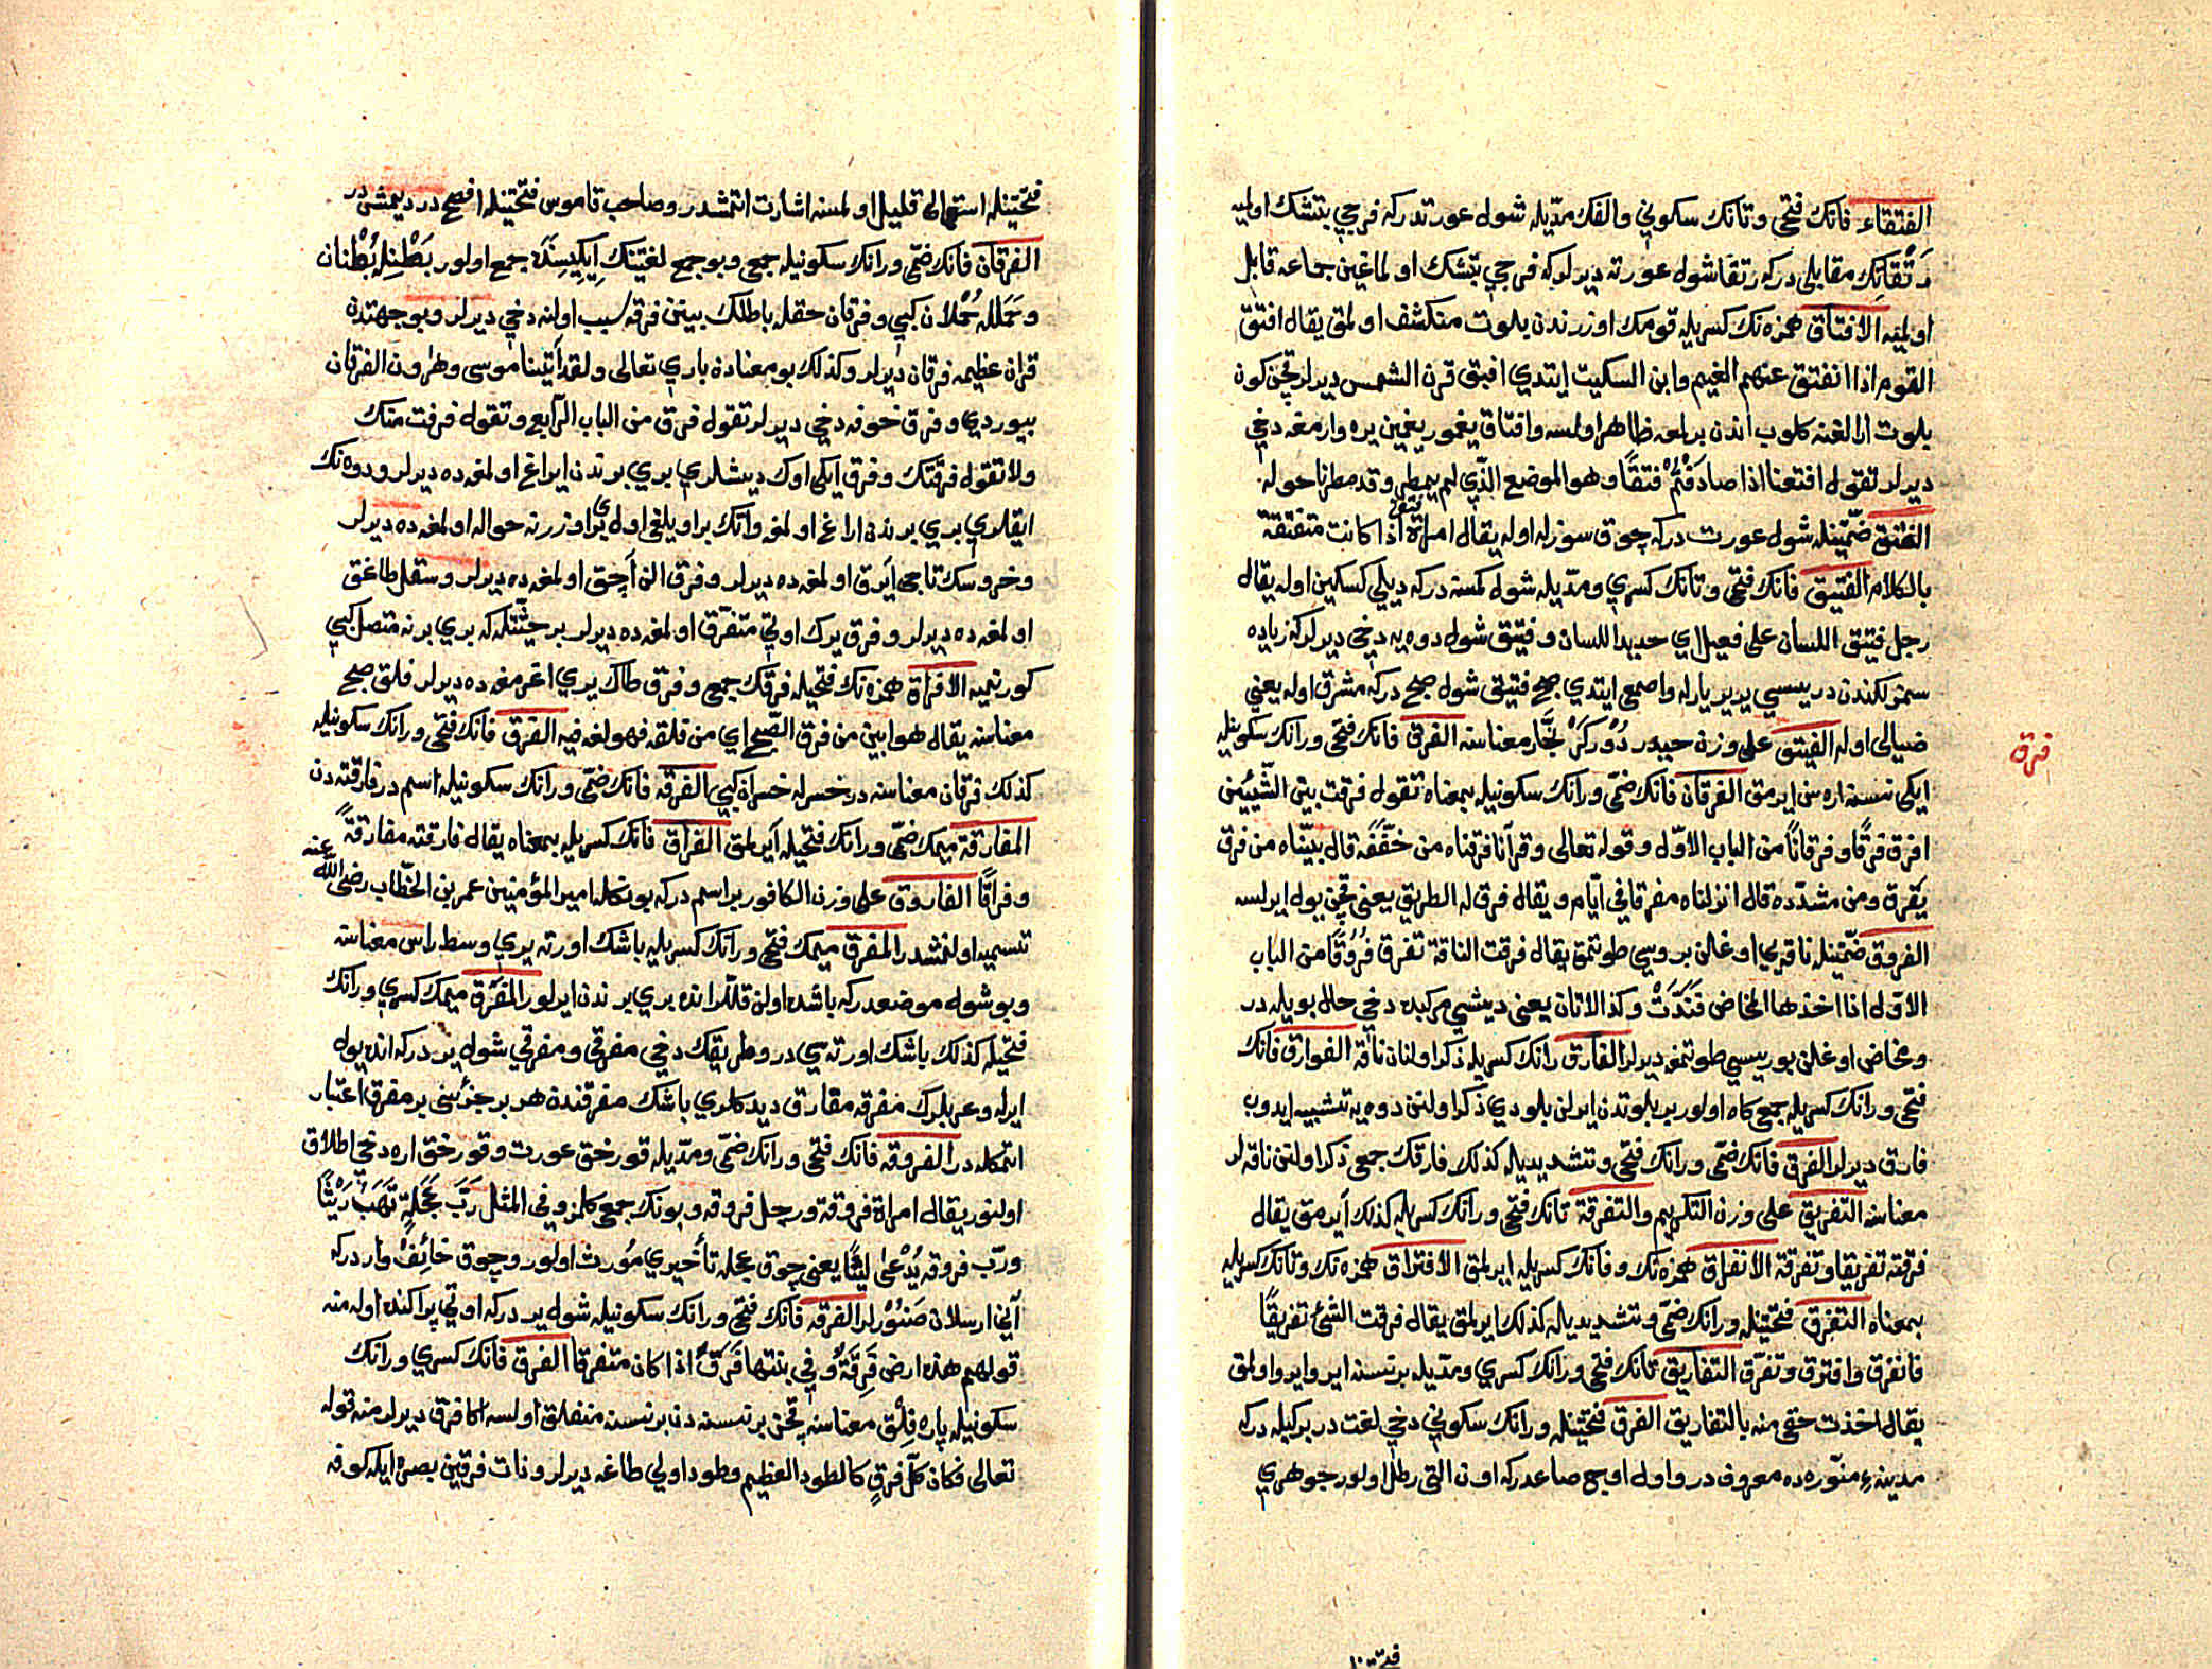 الفتقاء فانك فتحى وتانك سكونى والفك مدّيله شول عورتدركه فرجى بتشك اولميه
رتقانك مقابلى دركه رتقا شول عورته ديرلركه فرجى بتشك اولماغين جماعه قابل
اولميه الافتاق همزه نك كسريله قومك اوزرندن بلوت منكشف اولمق يقال افتق
القوم اذا انفتق عنهم الغيم وابن السكيت ايتدى افتق قرن الشمس ديرلر قچن كون
بلوت ارالغنه كلوب اندن بر لمعه ظاهر اولسه وافتاق يغمور يغمين يره وارمغه دخى
ديرلر تقول افتقنا اذا صادفتم فتقًا وهو الموضع الذّى لم يمطر وقد مطرنا حوله
الفتق ضمّتينله شول عورت دركه چوق سوزله اوله يقال امراة فتق اذا كانت متفتقة
بالكلام الفتيق فانك فتحى وتانك كسرى ومدّيله شول كمسنه دركه ديلى كسكين اوله يقال
رجل فتيق اللسان على فعيل اى حديد اللسان وفتيق شول دوه يه دخى ديرلركه زياده
سمزلكندن دريسى ير ير يارله واصمعى ايتدى صبح فتيق شول صبح دركه مشرق اوله يعنى
ضيالى اوله الفيتق على وزن حيدر دوركر نجّار معناسنه الفرق فانك فتحى ورانك سكونيله
فرق
ايكى نسنه اره سن ايرمق الفرقان فانك ضمّى ورانك سكونيله بمعناه تقول فرقت بين الشّيئين
افرق فرقًا وفرقانًا من الباب الاوّل وقوله تعالى وقرآنا فرقناه من خفّفه قال بيّنّاه من فرق
يفرق ومن مشدّده قال انزلناه مفرقا فى ايّام ويقال فرق له الطريق يعنى قچن يول ايرلسه
الفروق ضمّتينله ناقه يى اوغلن بروسى طوتمق يقال فرقت الناقة تفرق فروقًا من الباب
الاوّل اذا اخذها المخاض فندّت وكذا الاتان يعنى ديشى مركبده دخى حال بويله در
ومخاض اوغلن بوريسى طوتمغه ديرلر الفارق رانك كسريله ذكر اولنان ناقه الفوارق فانك
فتحى ورانك كسريله جمع كاه اولور بر بلوتدن ايرلن بلودى ذكر اولنن دوه يه تشبيه ايدوب
فارق ديرلر الفرق فانك ضمّى ورانك فتحى وتشديديله كذلك فارقك جمعى ذكر اولنن ناقه لر
معناسنه التفريق على وزن التكريم والتفرقة تانك فتحى ورانك كسريله كذلك ايرمق يقال
فرقته تفريقا وتفرقة الانفراق همزه نك وفانك كسريله ايرلمق الافتراق همزه نك وتانك كسريله
بمعناه التفرق فتحتينله ورانك ضمّى وتشديديله كذلك ايرلمق يقال فرقت الشئ تفريقًا
فانفرق وافترق وتفرّق التفاريق تانك فتحى ورانك كسرى ومدّيله بر نسنه ايرو ايرو اولمق
يقال اخذت حقى منه بالتفاريق الفرق فتحتينله ورانك سكونى دخى لغت در بر كيله دركه
مدينهء منوّره ده معروف در واول اوچ صاعدركه اون التى رطل اولور جوهرى
فتحتينله استعمالى قليل اولمسنه اشارت اتمشدر وصاحب قاموس فتحتينله افصح در ديمشدر
الفرقان فانك ضمّى ورانك سكونيله جمعى وبو جمع لغتينك ايكيسندَه جمع اولور بَطْنله بُطْنان
وحَمَلله حُملان كبى وفرقان حقله باطلك بينن فرقه سبب اولنه دخى ديرلر وبو جهتدن
قران عظيمه فرقان ديرلر وكذلك بو معنادن بارى تعالى ولقد آتينا موسى وهرون الفرقان
بيوردى وفرق خوفه دخى ديرلر تقول فرق من الباب الرّابع وتقول فرقت منك
ولا تقول فرقتك وفرق ايكى اوك ديشلرى برى برندن ايراغ اولمغه ده ديرلر ودوه نك
ايقلرى برى برندن اراغ اولمغه وآتك بر اويلغى اول بر اوزرنه حواله اولمغه ده ديرلر
وخروسك تاجى آيرق اولمغه ده ديرلر وفرق الن آچق اولمغه ده ديرلر وسقل طاغق
اولمغه ده ديرلر وفرق يرك اوتى متفرّق اولمغه ده ديرلر بر حيثيّتله كه برى برنه متصل كبى
كورنميه الافراق همزه نك فتحيله فرقك جمعى وفرق طاك يرى اغرمغه ده ديرلر فلق صبح
معناسنه يقال هو ابين من فرق الصّبح اى من فلقه فهو لغة فيه الفرق فانك فتحى ورانك سكونيله
كذلك فرقان معناسنه در خسرله خسران كبى الفرقة فانك ضمّى ورانك سكونيله اسم در فارقته دن
المفارقة ميمك ضمّى ورانك فتحيله آيرلمق الفراق فانك كسريله بمعناه يقال فارقته مفارقةً
وفراقًا الفاروق على وزن الكافور بر اسم دركه بونكله امير المؤمنين عمر بن الخطّاب رضى اللّه عنه
تسميه اولنمشدر المفرق ميمك فتحى ورانك كسريله باشك اورته يرى وسط راس معناسنه
وبو شول موضعدركه باشده اولن قللر انده برى برندن ايرلور المفرق ميمك كسرى ورانك
فتحيله كذلك باشك اورته سى در وطريقك دخى مفرقى ومفرقى شول ير دركه انده يول
ايرله وعربلرك مفرقه مفارق ديدكلرى باشك مفرقندن هر بر جزئنى بر مفرق اعتبار
اتمكله در الفروقة فانك فتحى ورانك ضمّى ومدّيله قورخق عورت وقورخق اره دخى اطلاق
اولنور يقال امراة فروقة ورجل فروقة وبونك جمعى كلمز وفى المثل ربّ عجلةٍ تهب ريثًا
وربّ فروقة يُدْعٰى ليثًا يعنى چوق عجله تأخيرى مورث اولور وچوق خائف وار دركه
آنى ارسلان صنورلر الفرقه فانك فتحى ورانك سكونيله شول ير دركه اوتى پراكنده اوله منه
قولهم هذه ارض فرقة وفى نبتها فرق اذا كان متفرقا الفرق فانك كسرى ورانك
سكونيله پاره فلق معناسنه قچن بر نسنه دن بر نسنه منفلق اولسه اكا فرق ديرلر منه قوله
تعالى فكان كلّ فرقٍ كالطود العظيم وطود اولى طاغه ديرلر وذات فرقين بصره ايله كوفه